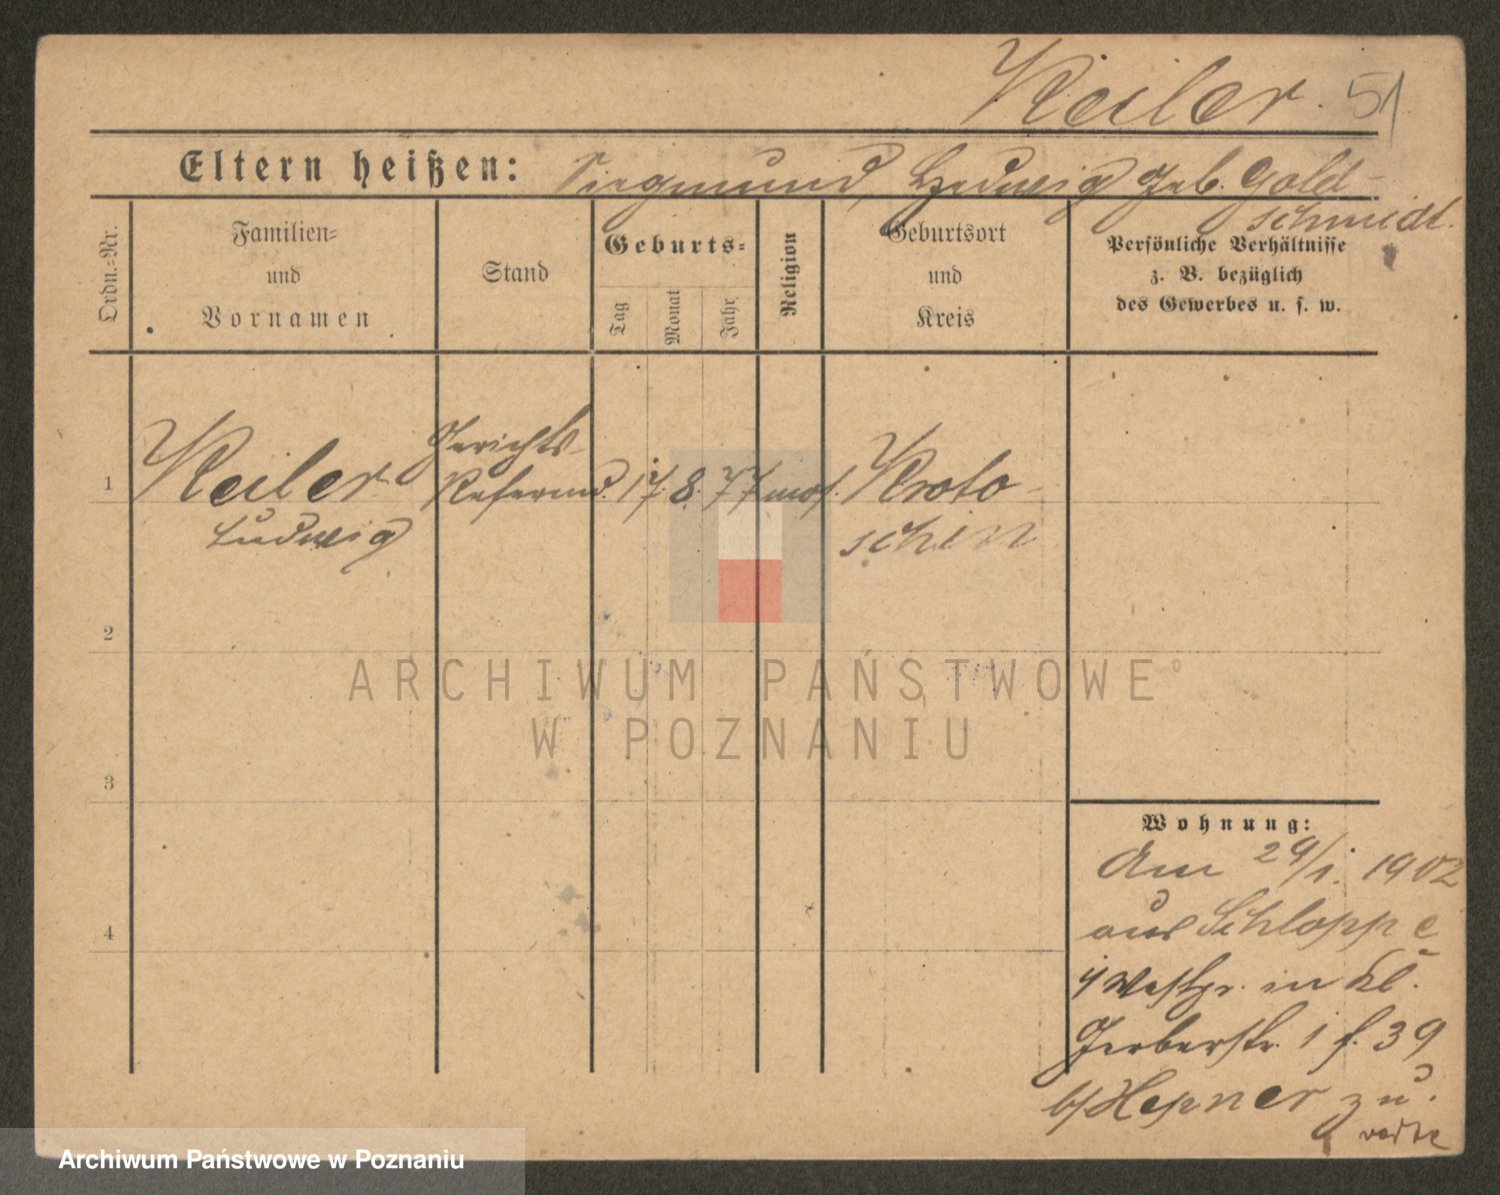 Keiler. 51
Eltern heißen: Siegmund, Hedwig geb. Gold-
schmidt.
Ordn.-Nr.
Familien-
und
Vornamen
Stand
Geburts-
Tag
Monat
Jahr
Religion
Geburtsort
und
Kreis
Persönliche Verhältnisse
z. B. bezüglich
des Gewerbes u. s. w.
1 Keiler Gerichts- Referend. 17. 8. 77 mos. Kroto-
Ludwig schin
2
3
4
Wohnung:
Am 29/1. 1902
aus Schloppe
i/ Westpr. in Kl.
Gerberstr. 1 f. 39
b/ Hepner zu.
verte
ARCHIWUM PAŃSTWOWE
W POZNANIU
Archiwum Państwowe w Poznaniu